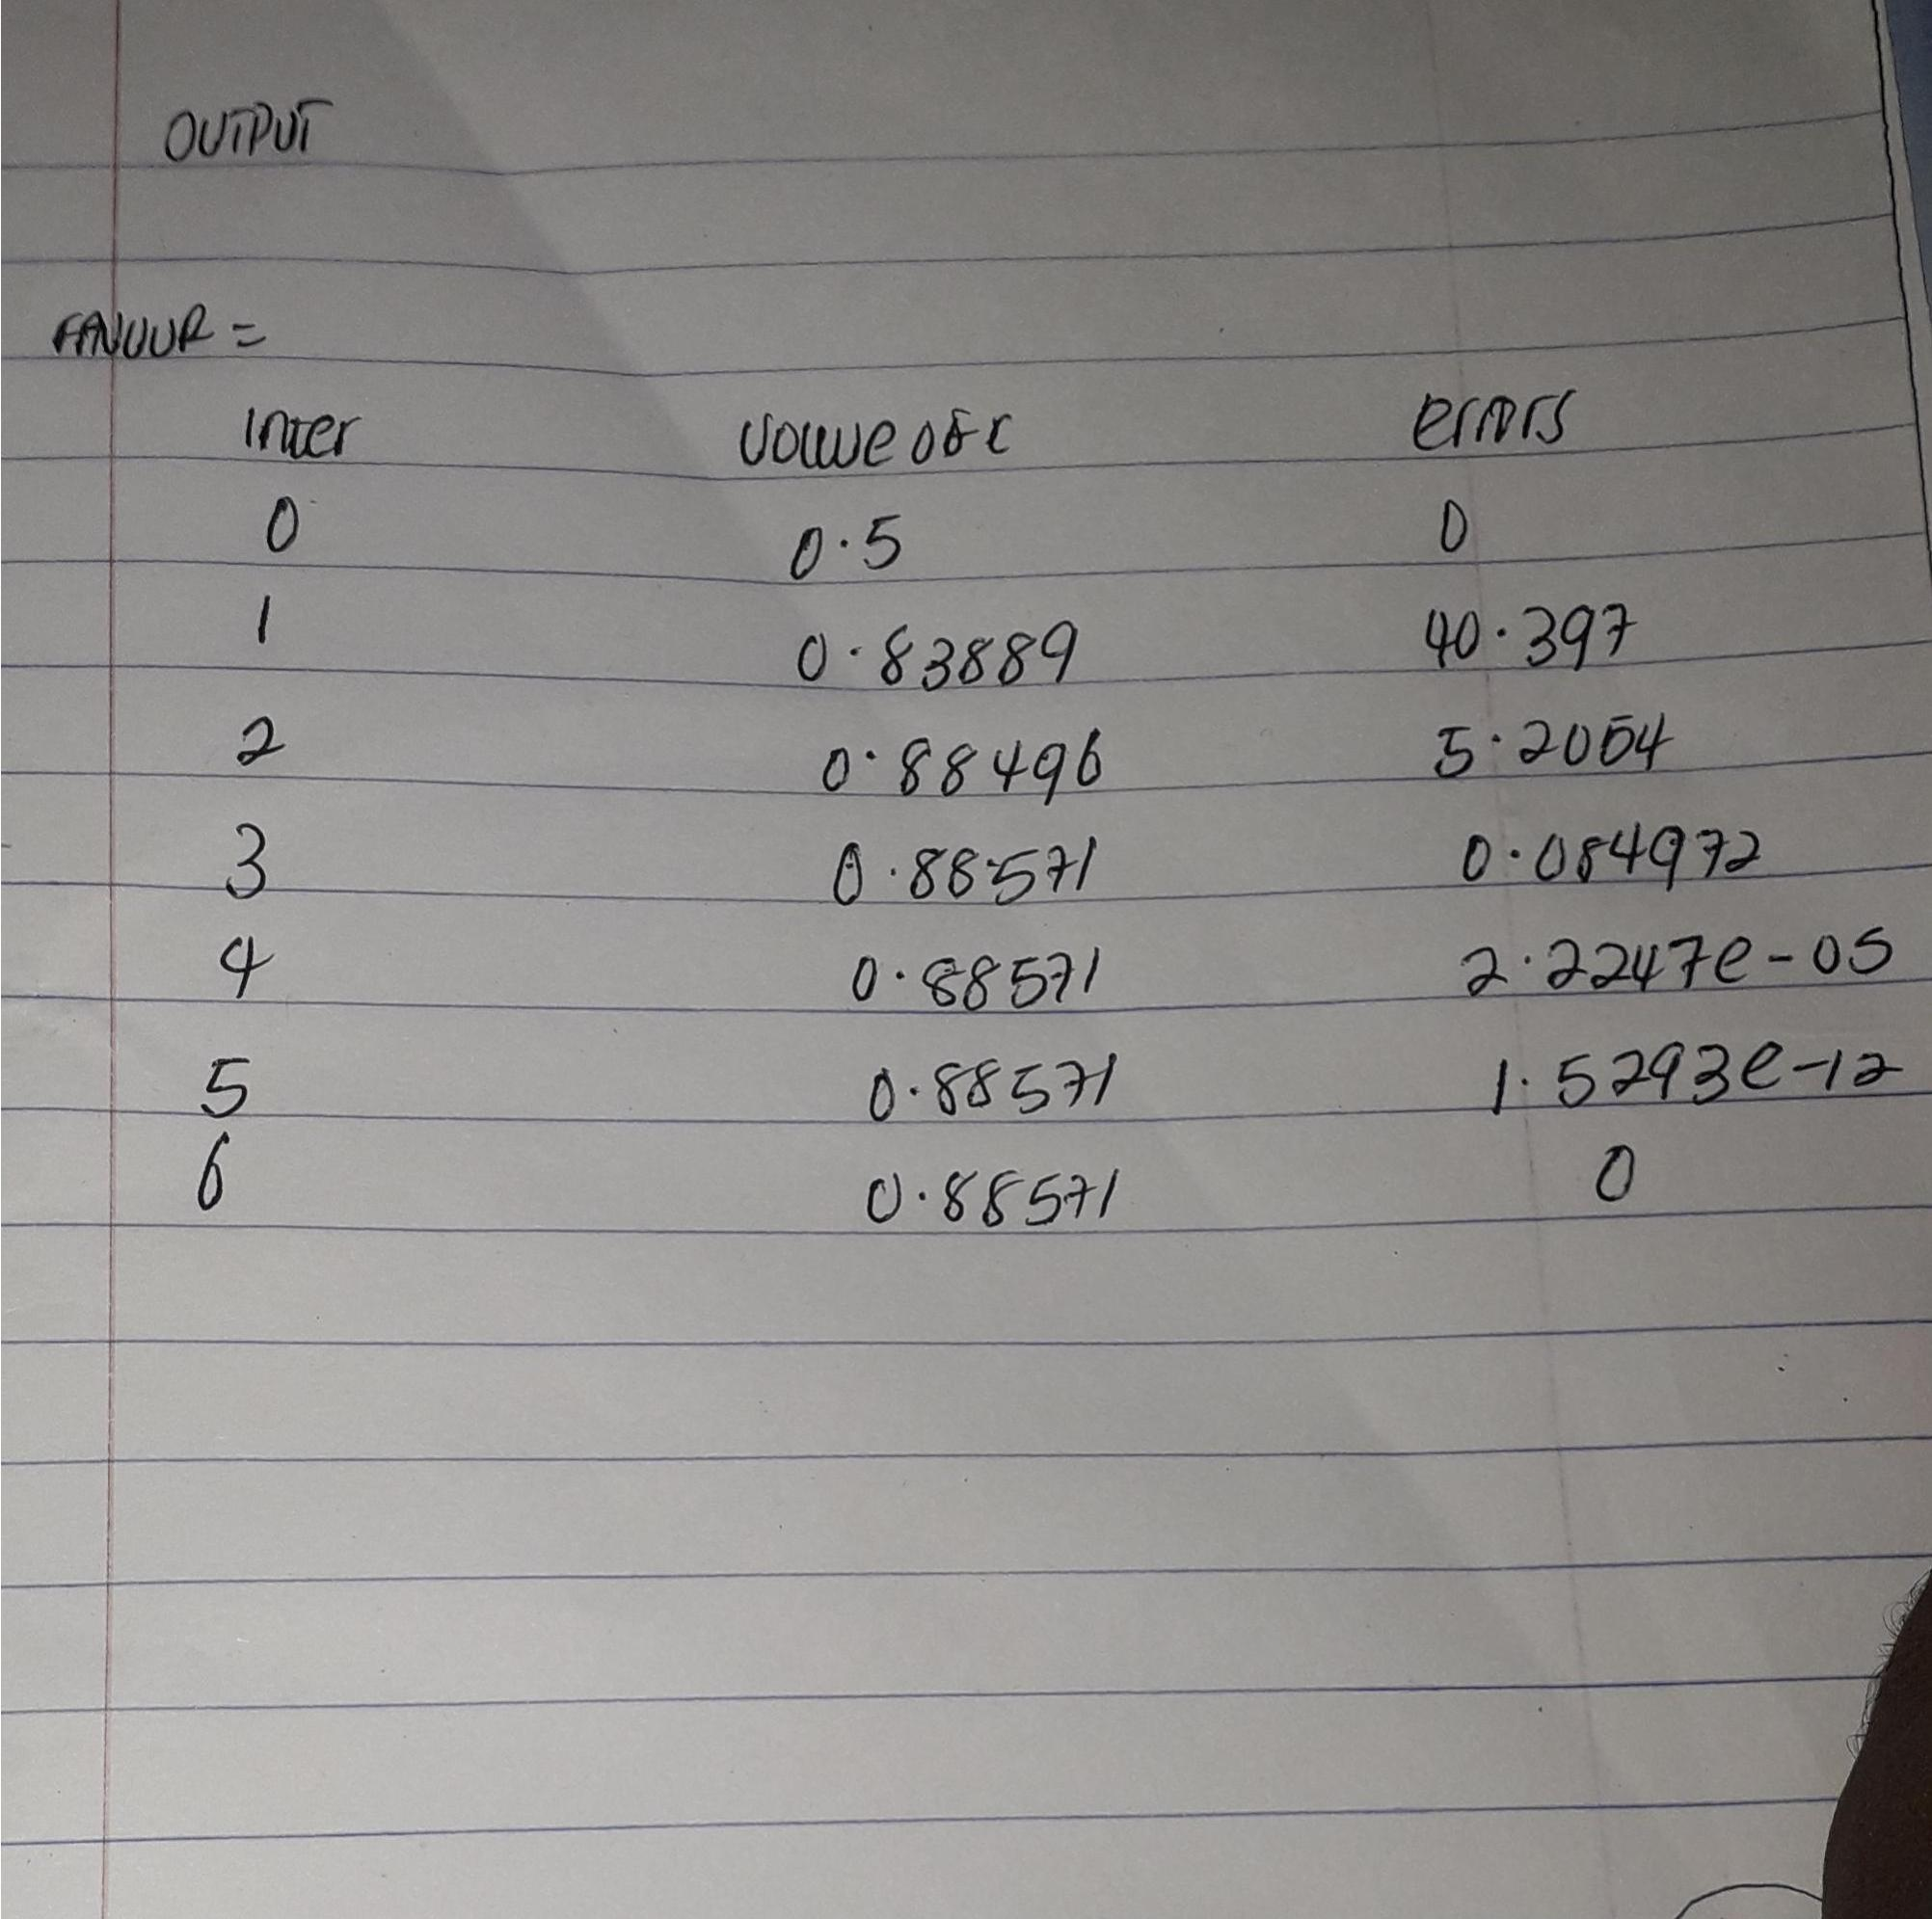 OUTPUT
FAVOUR =
Inter value of c errors
0 0.5 0
1 0.83889 40.397
2 0.88496 5.2054
3 0.88571 0.084972
4 0.88571 2.2247e-05
5 0.88571 1.5293e-12
6 0.88571 0